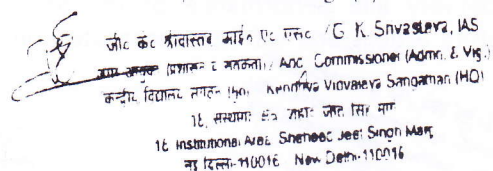 जी० के० श्रीवास्तव आई० ए० एस० / G. K. Srivastava, IAS
अपर आयुक्त (प्रशासन व सतर्कता) / Add. Commissioner (Admn. & Vig.)
केन्द्रीय विद्यालय संगठन (मु०) Kendriya Vidyalaya Sangathan (HQ)
18, संस्थागत क्षेत्र शहीद जीत सिंह मार्ग
18 Institutional Area Shaheed Jeet Singh Marg
नई दिल्ली-110016 New Delhi-110016